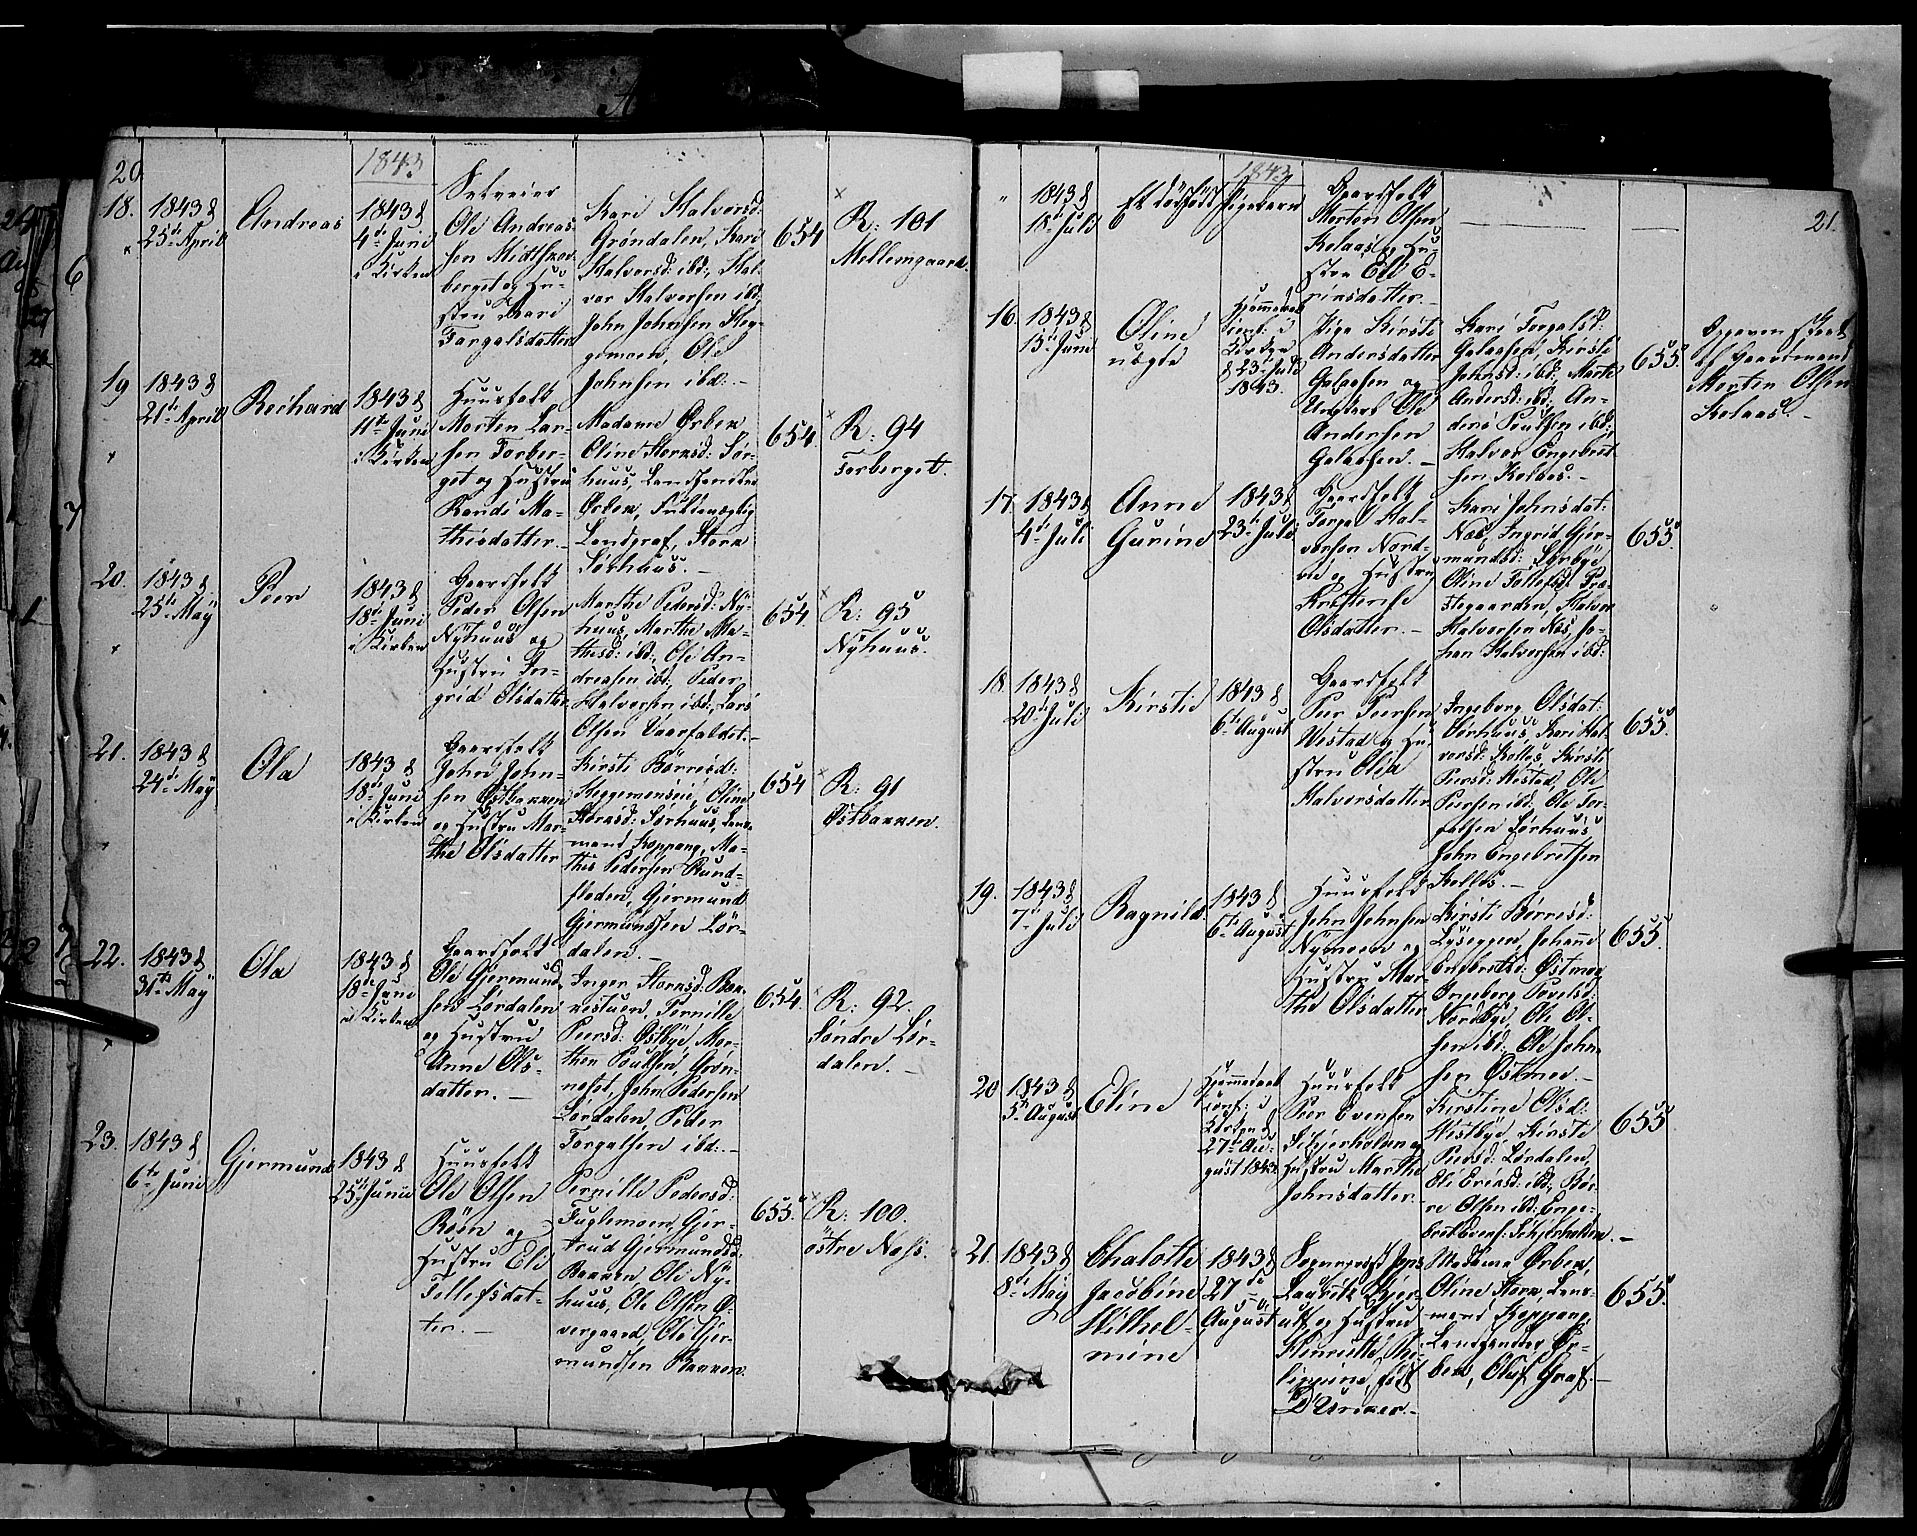 20.
1843
18.
1843 d
25de April
Andreas
1843 d
4de Juni
i Kirken
Selveier
Ole Andreas-
sen Midtskov-
berget og Hu-
stru Kari
Torgalsdatter
Kari Halvorsd:
Grøndalen, Kari
Halvorsd: ibd:, Hal-
vor Halvorsen ibd:
John Johnsen Heg-
gemoen, Ole
Johnsen ibd: -
654
R: 101
Mellemgaard.
19
1843 d
21de April
Reihard
1843 d
11te Juni
i Kirken
Huusfolk
Morten Lar-
sen Torber-
get og Hustru
Randi Ma-
thisdatter. -
Madame Ørben
Oline Storksd: Sør-
huus, Landhandler
Ørben, Fuldmægtig
Landgraf, Stork
Sørhuus. -
654.
R: 94
Torberget.
20.
1843 d
25de May
Peer
1843 d
18de Juni
i Kirken
Gaardfolk
Peder Olsen
Nÿhuus og
Hustru In-
grid Olsdatter
Marthe Pedersd: Nÿ-
huus, Marthe Ma-
thisd: ibd:, Ole An-
dreasen ibd:, Peder
Halvorsen ibd:, Lars
Olsen Vaarfaldet. -
654.
R: 95
Nÿhuus.
21.
1843 d
24de May
Ola
1843 d
18de Juni
i Kirken
Gaardfolk
John John-
sen Østbakken
og Hustru Mar-
the Olsdatter
Kirsti Børresd:
Heggemonseie, Oline
Storksd: Sørhuus, Lens-
mand Koppang, Ma-
this Pedersen Rund-
floden, Gjermund
Gjermundsen Lør-
dalen. -
654
R: 91
Østbakken.
22.
1843 d
31te May
Ola
1843 d
18de Juni
i Kirken
Gaardfolk
Ole Gjermund-
sen Lørdalen
og Hustru
Anne Ols-
datter. -
Inger Storksd: Bak-
kestuen, Pernille
Peersd: Østbÿe, Mor-
then Poulsen, Grøn-
neset, John Pedersen
Lørdalen, Peder
Torgalsen ibd: -
654.
R: 92.
Søndre Lør-
dalen. -
23.
1843 d
6te Juni
Gjermund
1843 d
25de Juni
Huusfolk
Ole Olsen
Röen og
Hustru Eli
Tollefsdat-
ter. -
Pernille Pedersd:
Fuglemoen, Gjer-
trud Gjermundsd:
Bakken, Ole Nÿ-
huus, Ole Olsen Ø-
vergaard, Ole Gjer-
mundsen Bakken.
655.
R: 100.
östre Næss.
21.
1843
"
1843 d
18de Juli
Et dødfødt Pigebarn
Gaardfolk
Morten Olsen
Kolaas og Hu-
stru Eli E-
riksdatter. -
16.
1843 d
15de Juni
Oline
uægte
Hjemmedøbt
Kirken
d 23de Juli
1843.
Pige Kirsti
Andersdatter
Galaasen og
Ungkarl Ole
Andersen
Galaasen. -
Kari Torgalsd:
Galaasen, Kirsti
Johnsd: ibd:, Marte
Andersd: ibd:, An-
ders Poulsen ibd:,
Halvor Engebret-
sen Kolaas. -
655.
af Gaardmand
Morten Olsen
Kolaas. -
17.
1843 d
4de Juli
Anne
Gurine
1843 d
23de Juli
Gaardfolk
Torgal Hal-
vorsen Nord-
re og Hustru
Olsdatter. -
Kari Johnsdat:
Næs, Ingrid Gjer-
mundsd: Sørbÿe,
Oline Tollefsd: Præ-
stegaarden, Halvor
Halvorsen Næs, Jo-
han Halvorsen ibd:
655.
18.
1843 d
20de Juli
Kirsti
1843 d
6te August
Gaardfolk
Peer Peersen
Westad og Hu-
stru Olea
Halvorsdatter
Ingeborg Olsdat:
Sørhuus, Kari Hal-
vorsd: Kolles, Kirsti
Peersd: Westad, Ole
Peersen ibd:, Ole Tor-
galsen Sørhuus,
John Engebretsen
Kolles. -
655.
19.
1843 d
7de Juli
Ragnild.
1843 d
6te August
Huusfolk
John Johnsen
Nÿmoen og
Hustru Mar-
the Olsdatter
Kirsti Børresd:
Lÿseggen, Johanne
Engebretsd: Østmoe
Ingeborg Povelsd:
Nordbÿe, Ole Ol-
sen ibd: Ole John-
sen Østmoe. -
655.
20
1843 d
5te August
Eline
Hjemmedøbt
conf: i
Kirken d
27de Au-
gust 1843
Huusfolk
Peer Evensen
Skjærholen og
Hustru Marthe
Johnsdatter.
Kirstine Olsd:
Westbÿe, Kirsti
Peersd: Lørdalen,
Eli Eriksd: ibd:, Bør-
re Olsen ibd:, Enge-
bret Evens: Skjærholen. -
655
21.
1843 d
8de May
Chalotte
Jacobine
Wilhel-
mine
1843 d
27de
August
Sogneprest Jens
Lauritz
og Hustru
Henriette
født
Madame Ørben,
Oline Stork, Lens-
mand Koppang,
Landhandler Ør-
ben, Oluf Graf. -
655.